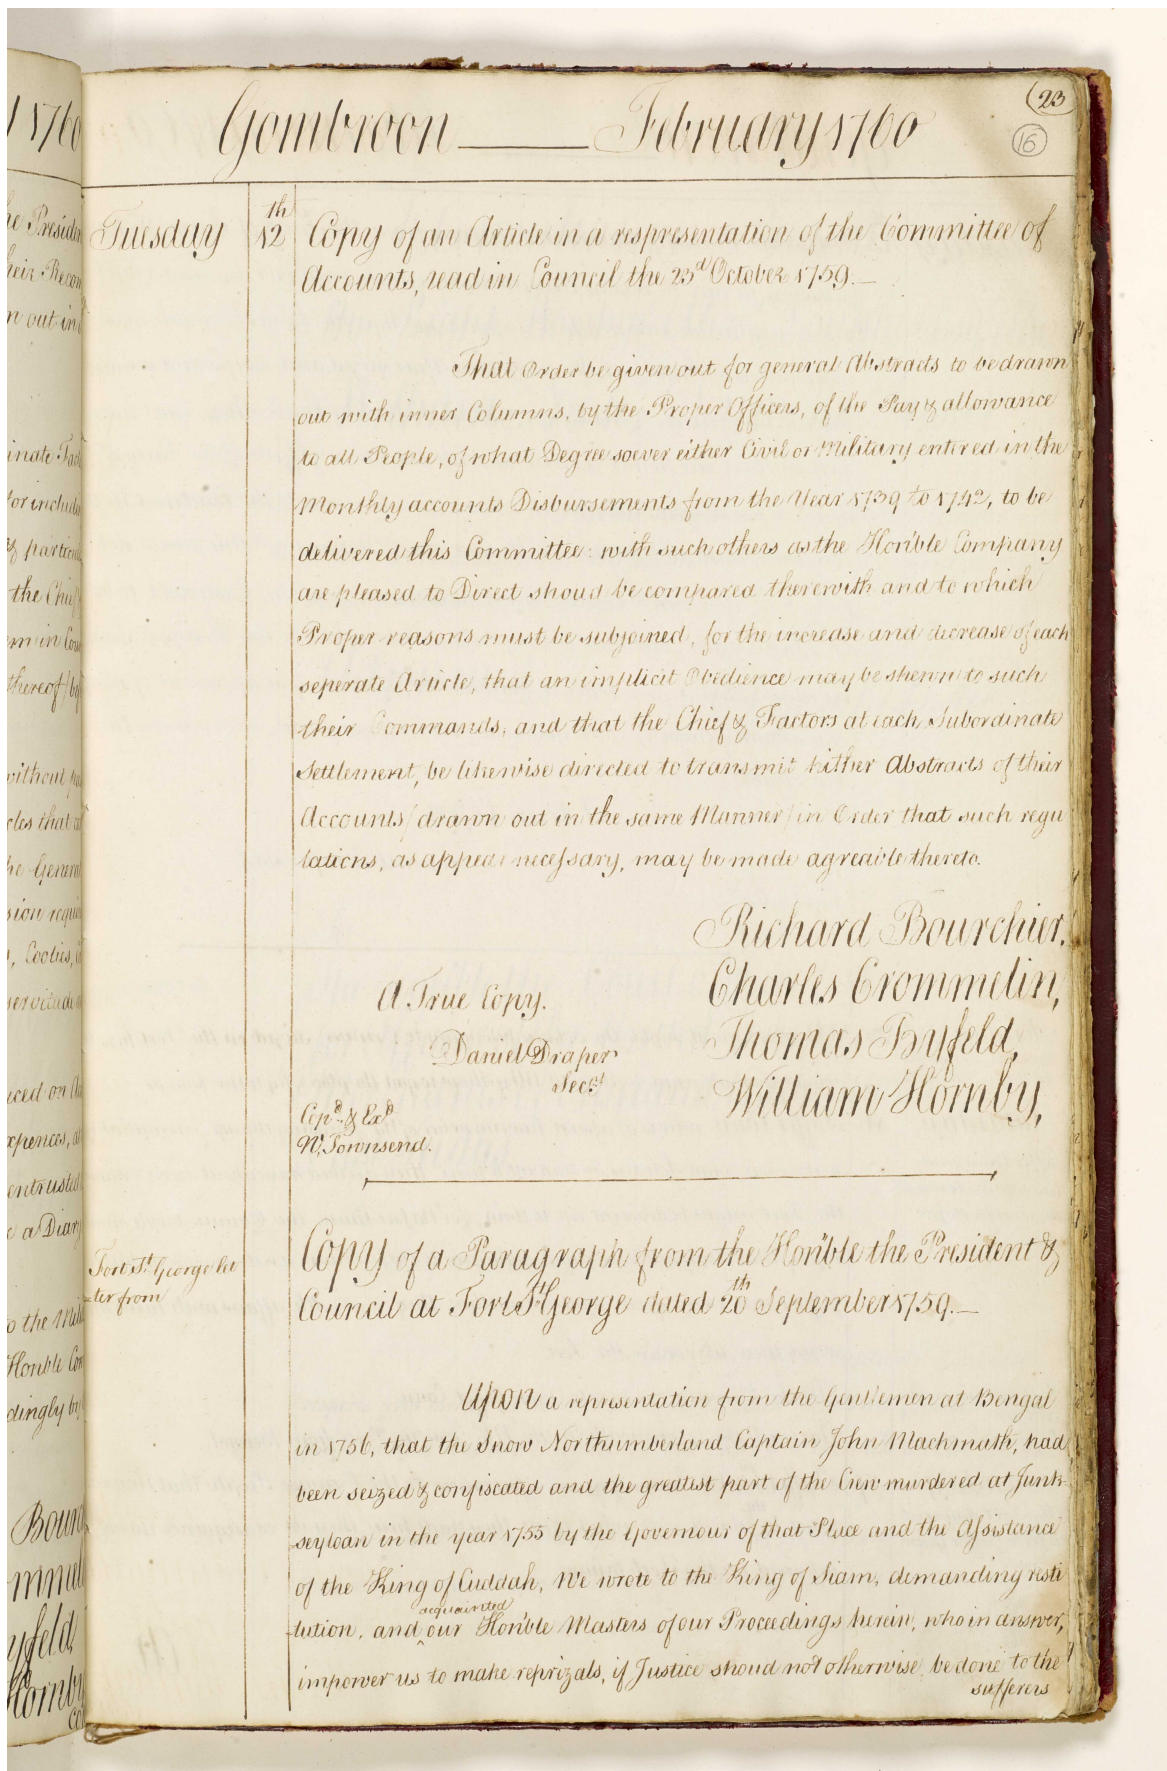 23
16
Gombroon February 1760
Tuesday
12th
Copy of an Article in a respresentation of the Committee of
Accounts, read in Council the 23d October 1759.—
That Order be given out for general Abstracts to be drawn
out with inner Columns, by the Proper Officers, of the Pay & allowance
to all People, of what Degree soever either Civil or Military entered in the
Monthly accounts Disbursements from the Year 1739 to 1742, to be
delivered this Committee: with such others as the Hon'ble Company
are pleased to Direct shoud be compared therewith and to which
Proper reasons must be subjoined, for the increase and decrease of each
seperate Article, that an implicit Obedience may be shewn to such
their Commands, and that the Chief & Factors at each Subordinate
Settlement, be likewise directed to transmit hither Abstracts of their
Accounts / drawn out in the same Manner / in Order that such regu
lations, as appear necessary, may be made agreable thereto.
Richard Bourchier,
Charles Crommelin,
Thomas Byfeld,
William Hornby,
A True Copy.
Daniel Draper
Secry
Copd. & Exd
Wm. Townsend.
Fort St. George let
ter from
Copy of a Paragraph from the Hon'ble the President &
Council at Fort St George dated 20th September 1759.—
Upon a representation from the Gentlemen at Bengal
in 1756, that the Snow Northumberland Captain John Machmath, had
been seized & confiscated and the greatest part of the Crew murdered at Junk-
seyloan in the year 1755 by the Governour of that Place and the Assistance
of the King of Cuddah, We wrote to the King of Siam, demanding resti
tution, and acquainted our Hon'ble Masters of our Proceedings herein, who in answer,
impower us to make reprizals, if Justice shoud not otherwise be done to the
sufferers
1760
he Presiden
heir Recon
n out in
inate Fact
for includ
& particul
the Chief
em in Cou
thereof by
without
cles that
he General
sion requi
Coolies,
servitude
uced on
xpences,
entrusted
a Diary
o the Mili
Hon'ble Com
dingly by
Bourc
mmel
yfeld
Hornby